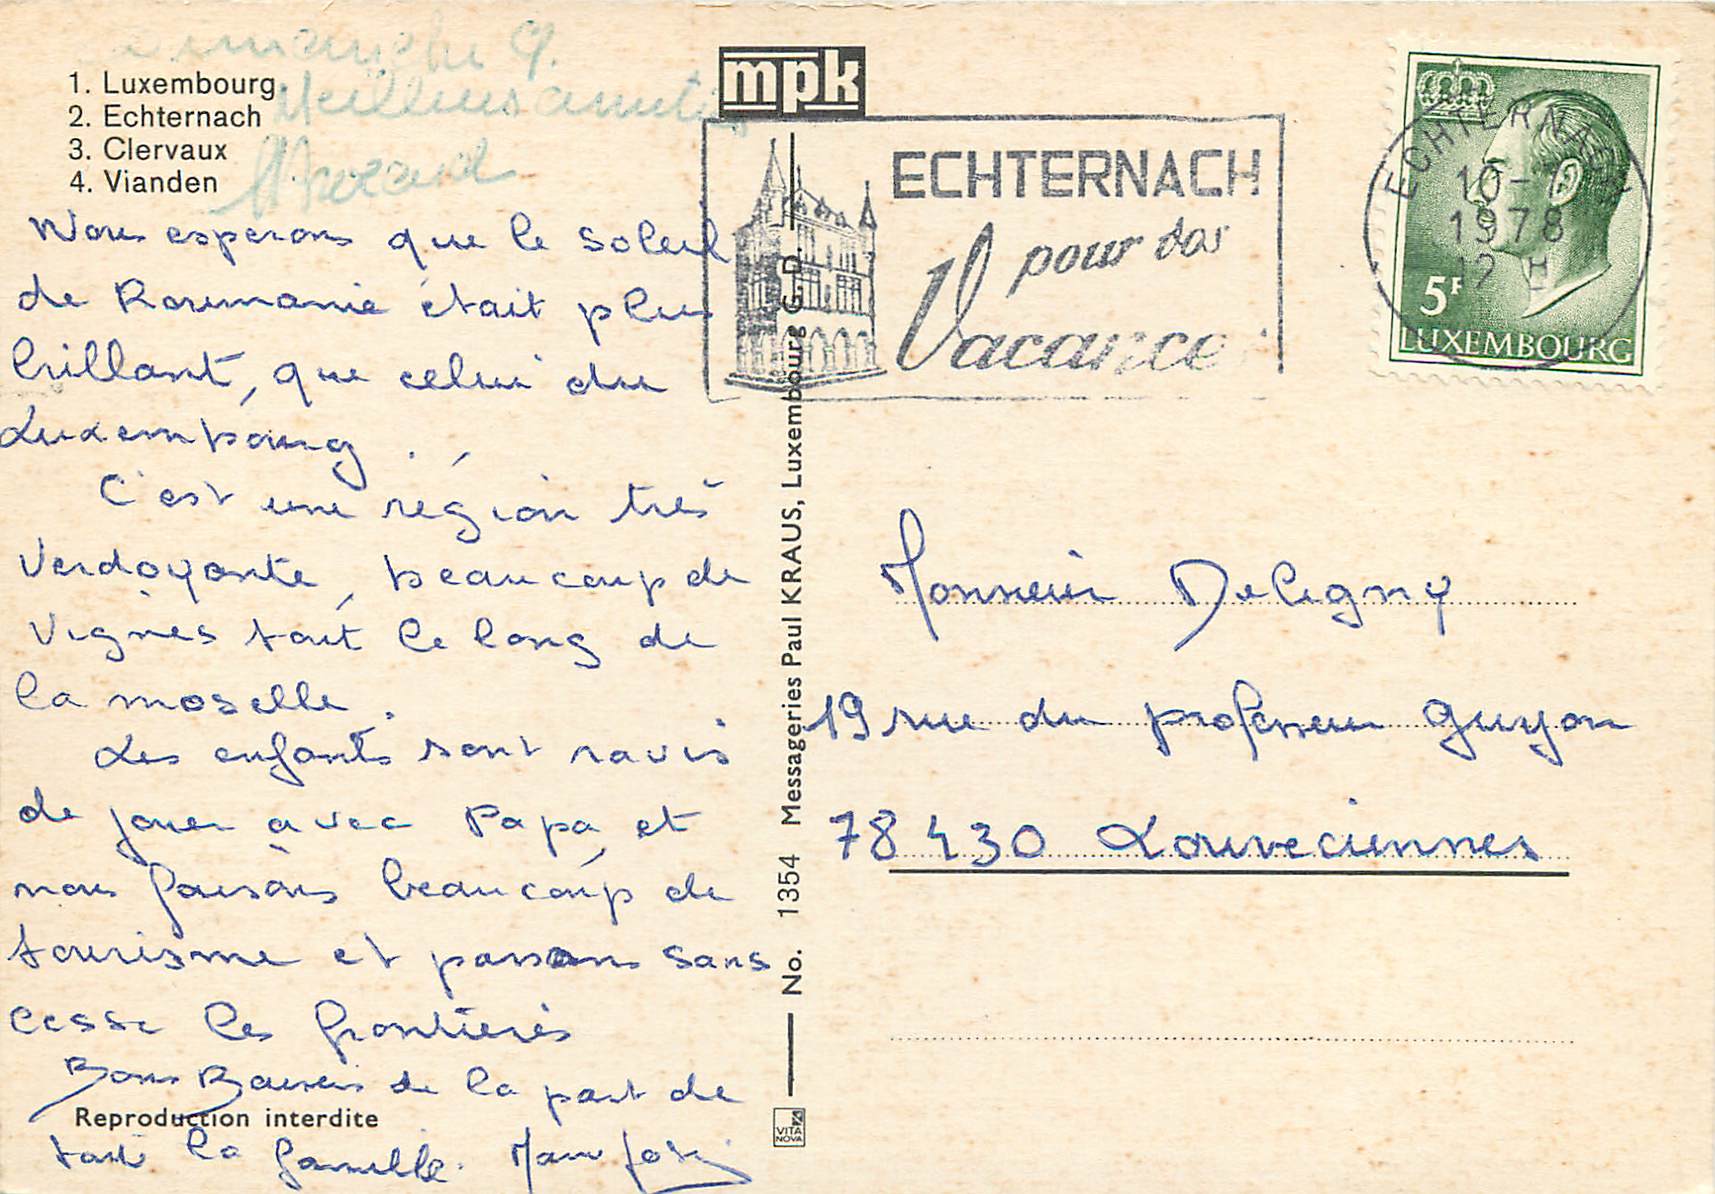 Dimanche 9.
Meilleures amitiés
1. Luxembourg
2. Echternach
3. Clervaux
4. Vianden
Nous esperons que le soleil
de Roumanie était plus
brillant, que celui du
Luxembourg.
C'est une région très
verdoyante, beaucoup de
vignes tout le long de
la moselle.
Les enfants sont ravis
de jouer avec Papa, et
nous faisons beaucoup de
tourisme et passons sans
cesse les frontières
Bons Baisers de la part de
toute la famille.
Reproduction interdite
mpk
No. 1354 Messageries Paul KRAUS, Luxembourg G. D.
VITA
NOVA
ECHTERNACH
pour vos
Vacances
ECHTERNACH
10-
1978
12 H
5F
LUXEMBOURG
Monsieur Deligny
19 rue du professeur Guyon
78430 Louveciennes